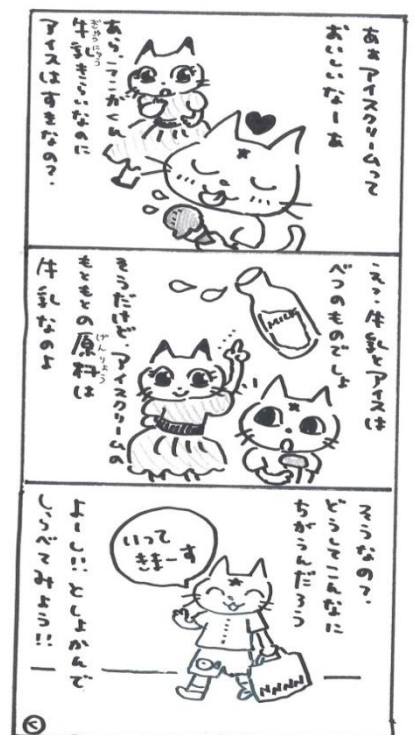 あぁアイスクリームって
おいしいなーぁ
あら、ここがくん
牛乳きらいなのに
ぎゅうにゅう
アイスはすきなの？
えっ、牛乳とアイスは
べつのものでしょ
MILK
そうだけど、アイスクリームの
もともとの原料は
げんりょう
牛乳なのよ
そうなの？
どうしてこんなに
ちがうんだろう
いって
きまーす
よーし!!としょかんで
しらべてみよう!!
く